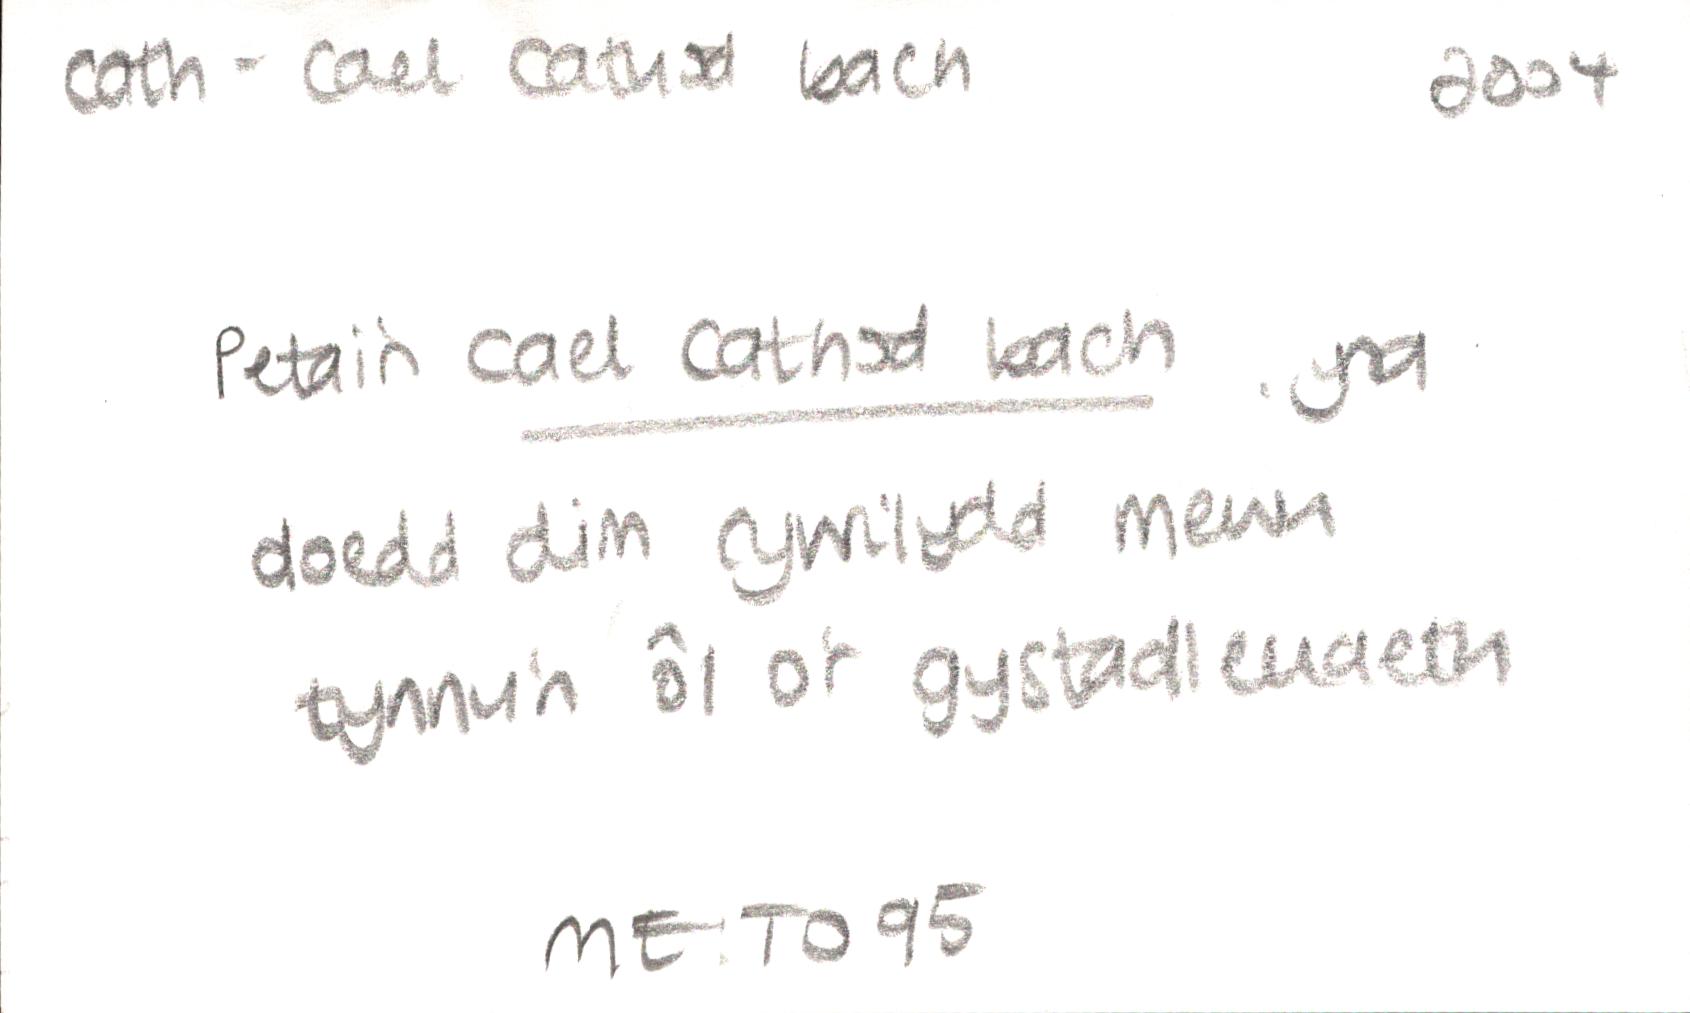 cath - cael cathod bach 2004
Petai'n cael cathod bach, yna
doedd dim cywilydd mewn
tynnu'n ôl o'r gystadleuaeth
ME:TO 95